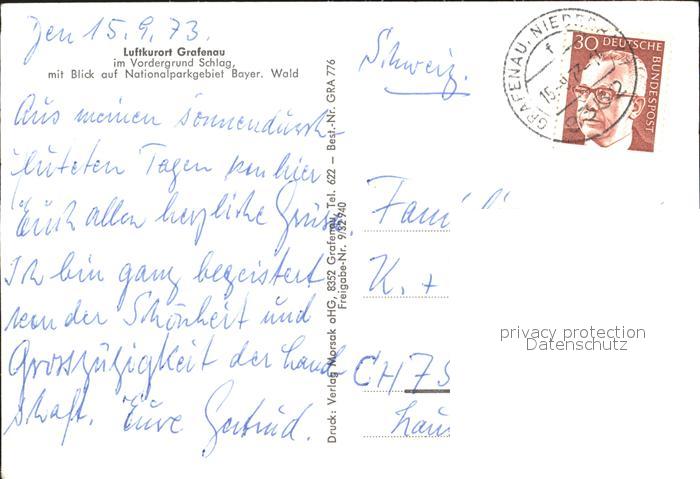 Den 15.9.73.
Luftkurort Grafenau
im Vordergrund Schlag,
mit Blick auf Nationalparkgebiet Bayer. Wald
Aus meinen sonnendurch-
fluteten Tagen von hier
Euch allen herzliche Grüsse.
Ich bin ganz begeistert
von der Schönheit und
Grosszügigkeit der Land-
schaft. Eure Gertrud.
Druck: Verlag Morsak oHG, 8352 Grafenau, Tel. 622 — Best.-Nr. GRA 776
Freigabe-Nr. 9/32940
Schweiz.
GRAFENAU, NIEDERB
30 DEUTSCHE
BUNDESPOST
Fami
K. +
CH 75
privacy protection
Datenschutz